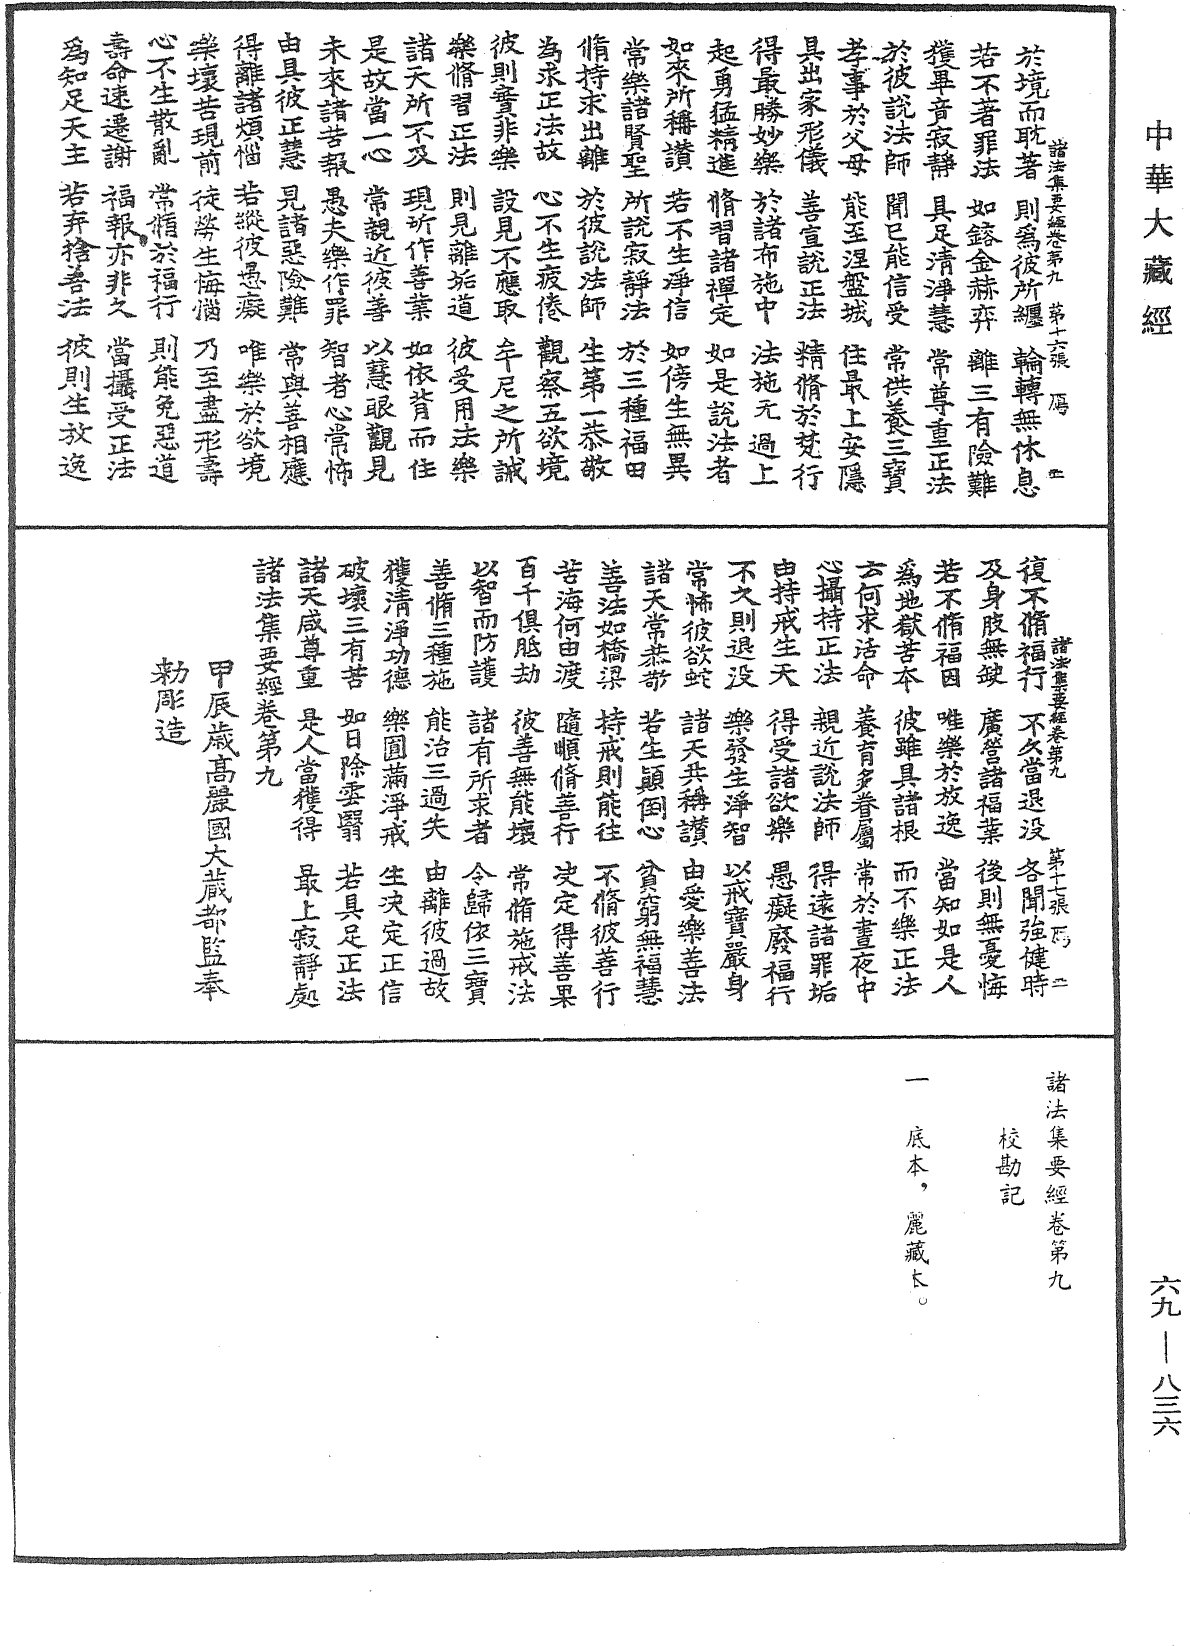 中華大藏經
諸法集要經卷第九　第十六張　鴈
於境而耽著　則爲彼所纏　輪轉無休息
若不著罪法　如鎔金赫弈　離三有險難
獲畢竟寂靜　具足清淨慧　常尊重正法
於彼說法師　聞已能信受　常供養三寶
孝事於父母　能至涅盤城　住最上安隱
具出家形儀　善宣說正法　精脩於梵行
得最勝妙樂　於諸布施中　法施无過上
起勇猛精進　脩習諸禪定　如是說法者
如來所稱讚　若不生淨信　如傍生無異
常樂諸賢聖　所說寂靜法　於三種福田
脩持求出離　於彼說法師　生第一恭敬
為求正法故　心不生疲倦　觀察五欲境
彼則實非樂　設見不應取　牟尼之所誡
樂脩習正法　則見離垢道　彼受用法樂
諸天所不及　現所作善業　如依背而住
是故當一心　常親近彼善　以慧眼觀見
未來諸苦報　愚夫樂作罪　智者心常怖
由具彼正慧　見諸惡險難　常與善相應
得離諸煩惱　若縱彼愚癡　唯樂於欲境
樂壞苦現前　徒勞生悔惱　乃至盡形壽
心不生散亂　常脩於福行　則能免惡道
壽命速遷謝　福報亦非久　當攝受正法
爲知足天主　若弃捨善法　彼則生放逸
諸法集要經卷第九　第十七張　鴈
復不脩福行　不久當退没　各聞強健時
及身肢無缺　廣營諸福業　後則無憂悔
若不脩福因　唯樂於放逸　當知如是人
爲地獄苦本　彼雖具諸根　而不樂正法
云何求活命　養育多眷屬　常於晝夜中
心攝持正法　親近說法師　得遠諸罪垢
由持戒生天　得受諸欲樂　愚癡廢福行
不久則退没　樂發生淨智　以戒寶嚴身
常怖彼欲蛇　諸天共稱讚　由愛樂善法
諸天常恭敬　若生顛倒心　貧窮無福慧
善法如橋梁　持戒則能往　不脩彼善行
苦海何由渡　隨順脩善行　決定得善果
百千俱胝劫　彼善無能壞　常脩施戒法
以智而防護　諸有所求者　令歸依三寶
善脩三種施　能治三過失　由離彼過故
獲清淨功德　樂圓滿淨戒　生決定正信
破壞三有苦　如日除雲翳　若具足正法
諸天咸尊重　是人當獲得　最上寂靜處
諸法集要經卷第九
甲辰歲高麗國大藏都監奉
勑彫造
諸法集要經卷第九
校勘記
一　底本，麗藏本。
六九—八三六